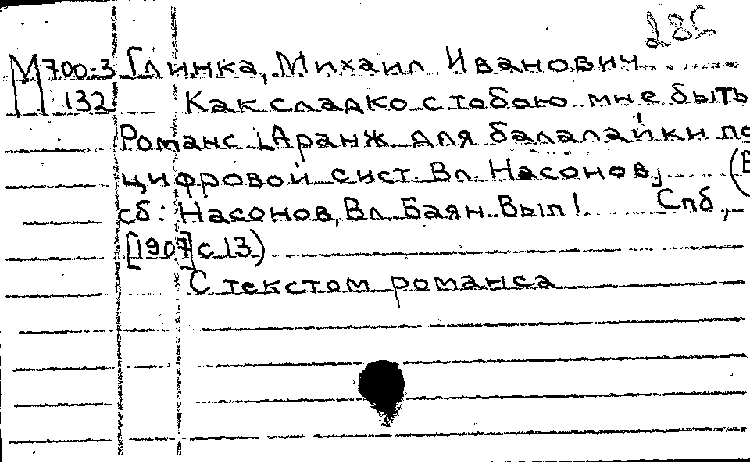 285
М 700-3 Глинка, Михаил Иванович
132 Как сладко с тобою мне быть
Романс [Аранж для балалайки по
цифровой сист. Вл. Насонов] (В
сб: Насонов, Вл. Баян. Вып 1. Спб,
[1907] с. 13)
С текстом романса